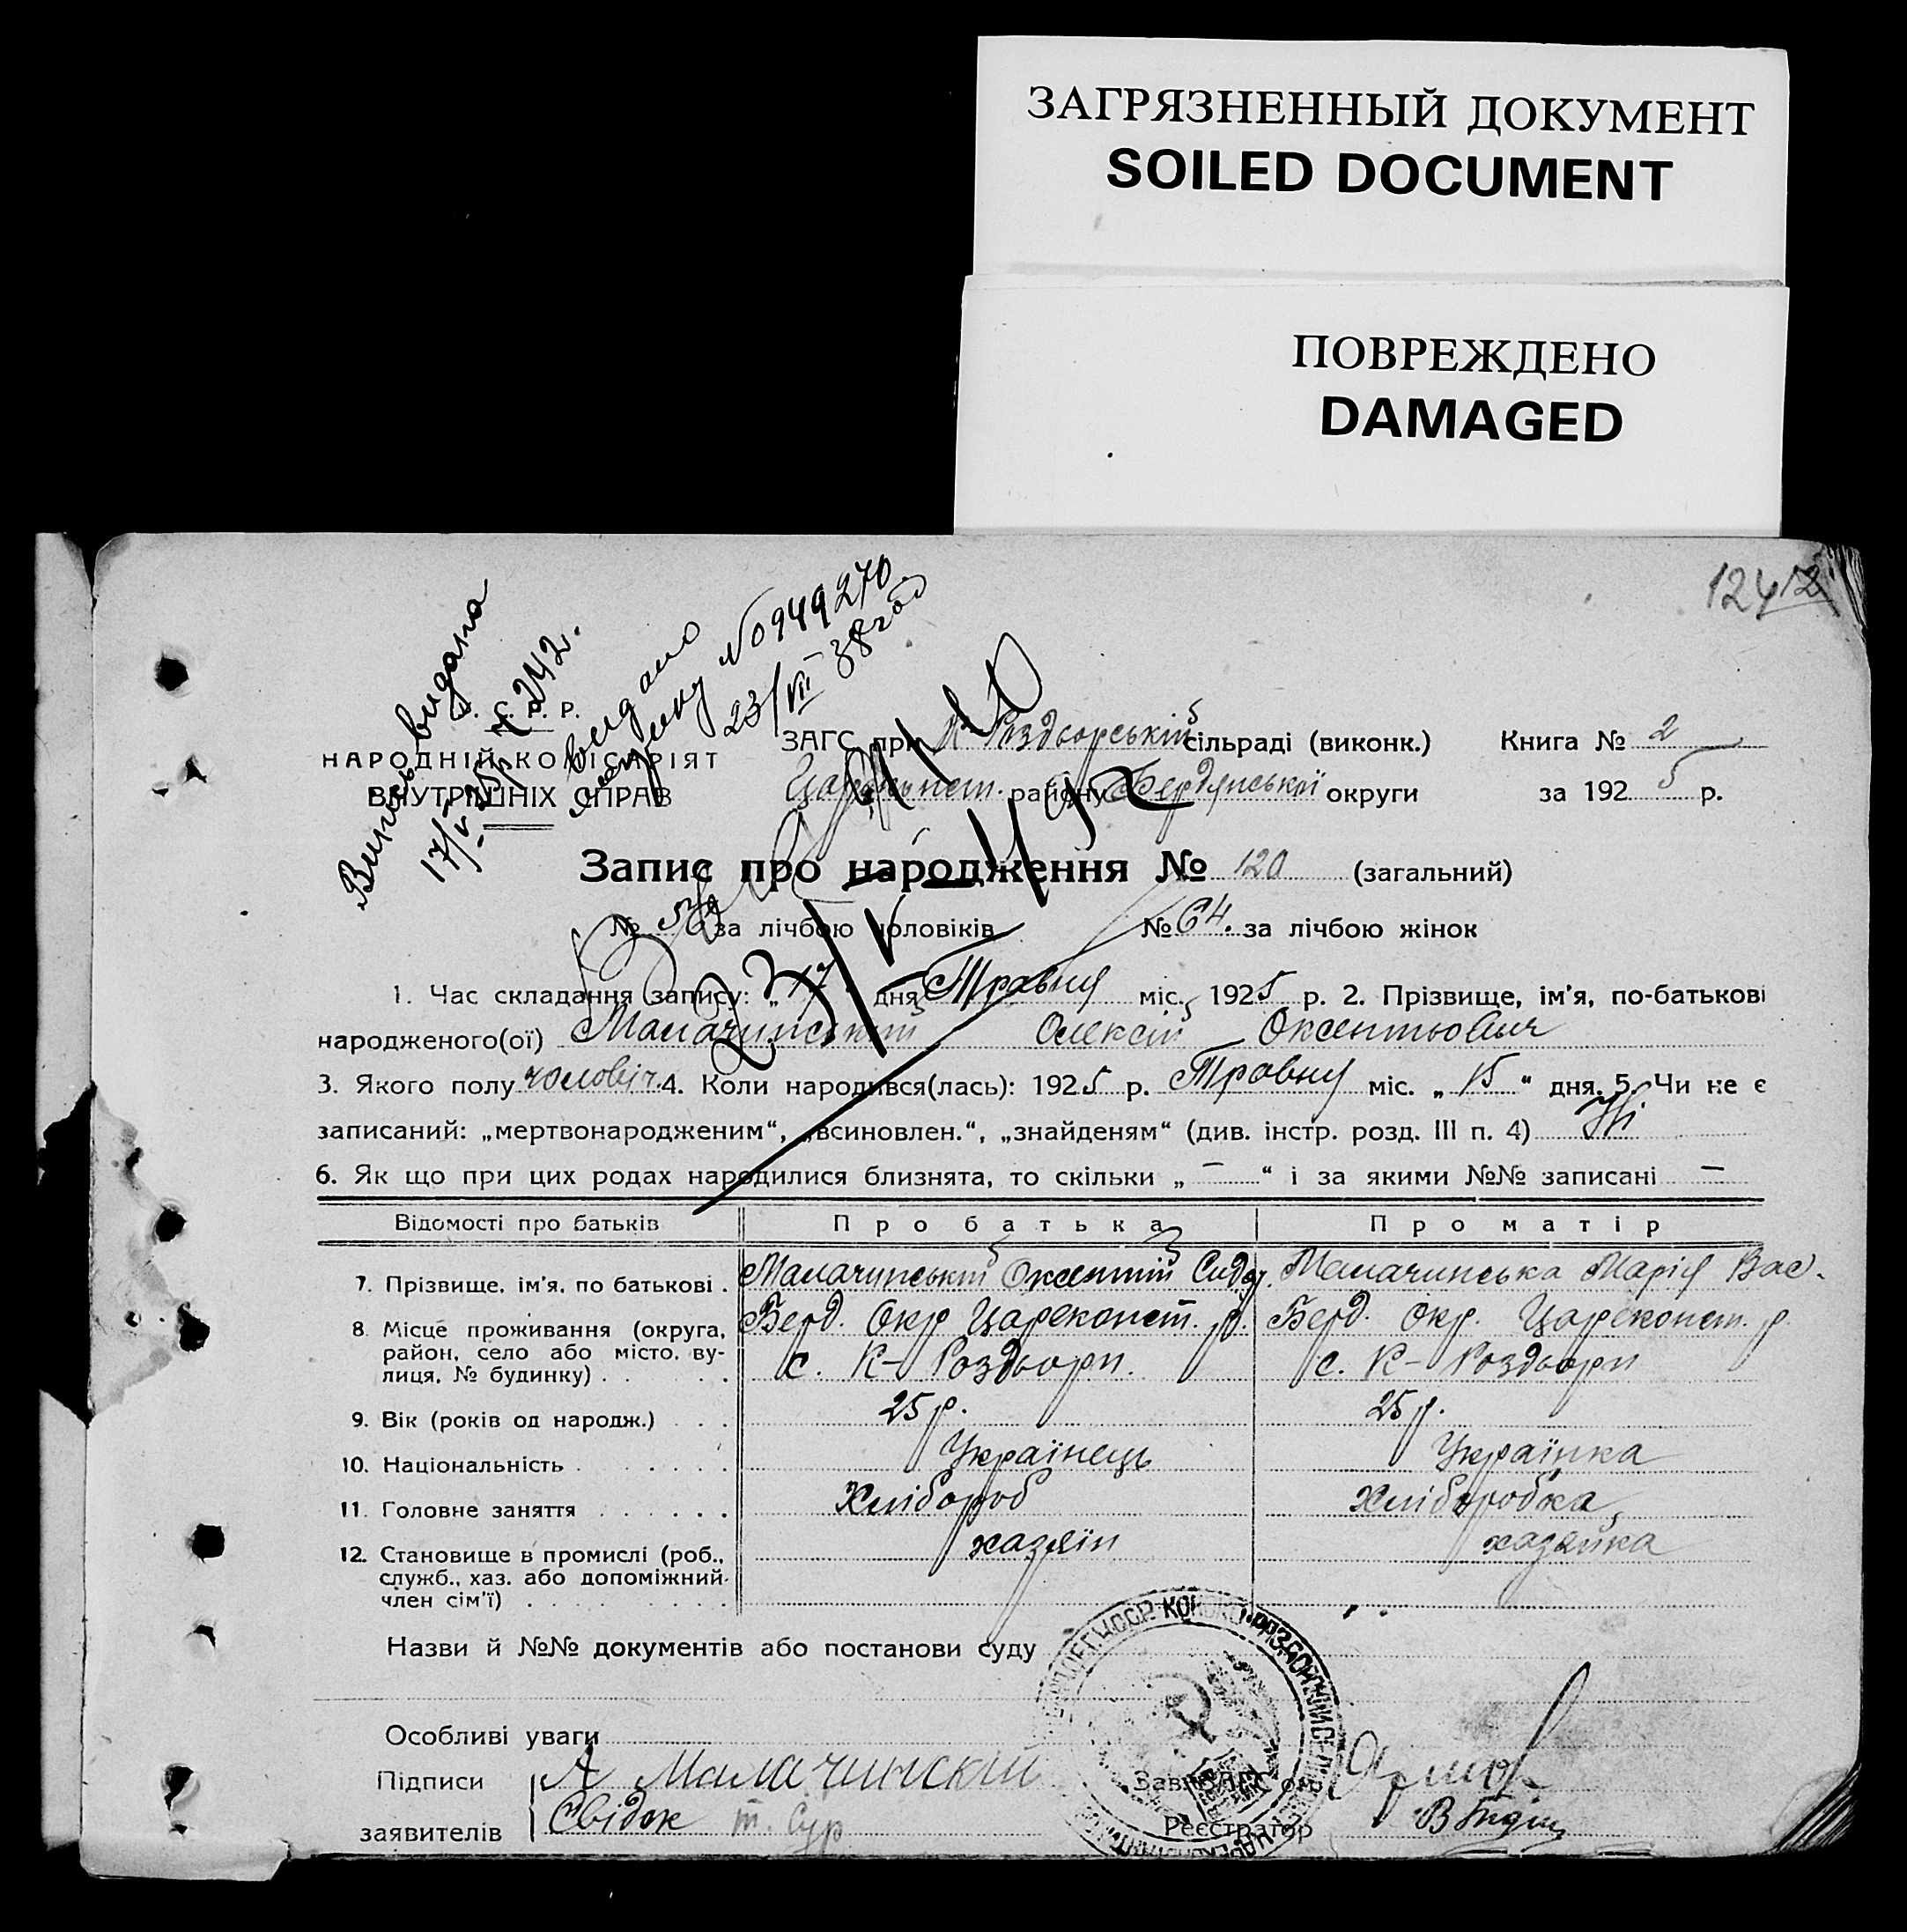 ЗАГРЯЗНЕННЫЙ ДОКУМЕНТ
SOILED DOCUMENT
ПОВРЕЖДЕНО
DAMAGED
124
Випись видана
17/V 25р 242.
видано
No 949270
23/VII 38 год
У. С. Р. Р.
НАРОДНІЙ КОМІСАРІЯТ
ВНУТРІШНІХ СПРАВ
ЗАГС при К-Роздьорській сільраді (виконк.) Книга № 2
Царекнст. району Бердянської округи за 1925 р.
Запис про народження № 120 (загальний)
№ 56 за лічбою чоловіків № 64. за лічбою жінок
23/V
1. Час складання запису: „17“ дня Травня міс. 1925 р. 2. Прізвище, ім’я, по-батькові
народженого(ої) Малачинський Олексій Оксентьович
3. Якого полу чоловіч. 4. Коли народився(лась): 1925 р. Травня міс. „15“ дня. 5. Чи не є
записаний: „мертвонародженим“, „всиновлен.“, „знайденям“ (див. інстр. розд. III п. 4) Ні
6. Як що при цих родах народилися близнята, то скільки „ — “ і за якими №№ записані —
Відомості про батьків Про батька Про матір
7. Прізвище, ім’я, по батькові . Малачинський Оксентій Сидор. Малачинська Марія Вас.
8. Місце проживання (округа, район, село або місто, вулиця, № будинку) Берд. Окр Цареконст. р. Берд. Окр. Цареконст. р.
с. К-Роздьори. с. К-Роздьори
9. Вік (років од народж.) 25 р. 25 р.
10. Національність Українець Українка
11. Головне заняття Хлібороб Хліборобка
12. Становище в промислі (роб., служб., хаз. або допоміжний член сім’ї) хазяїн хазяйка
Назви й №№ документів або постанови суду
Особливі уваги
Підписи А Малачинскій Зав. ЗАГС’ом
заявителів Свідок т. Сур Реєстратор